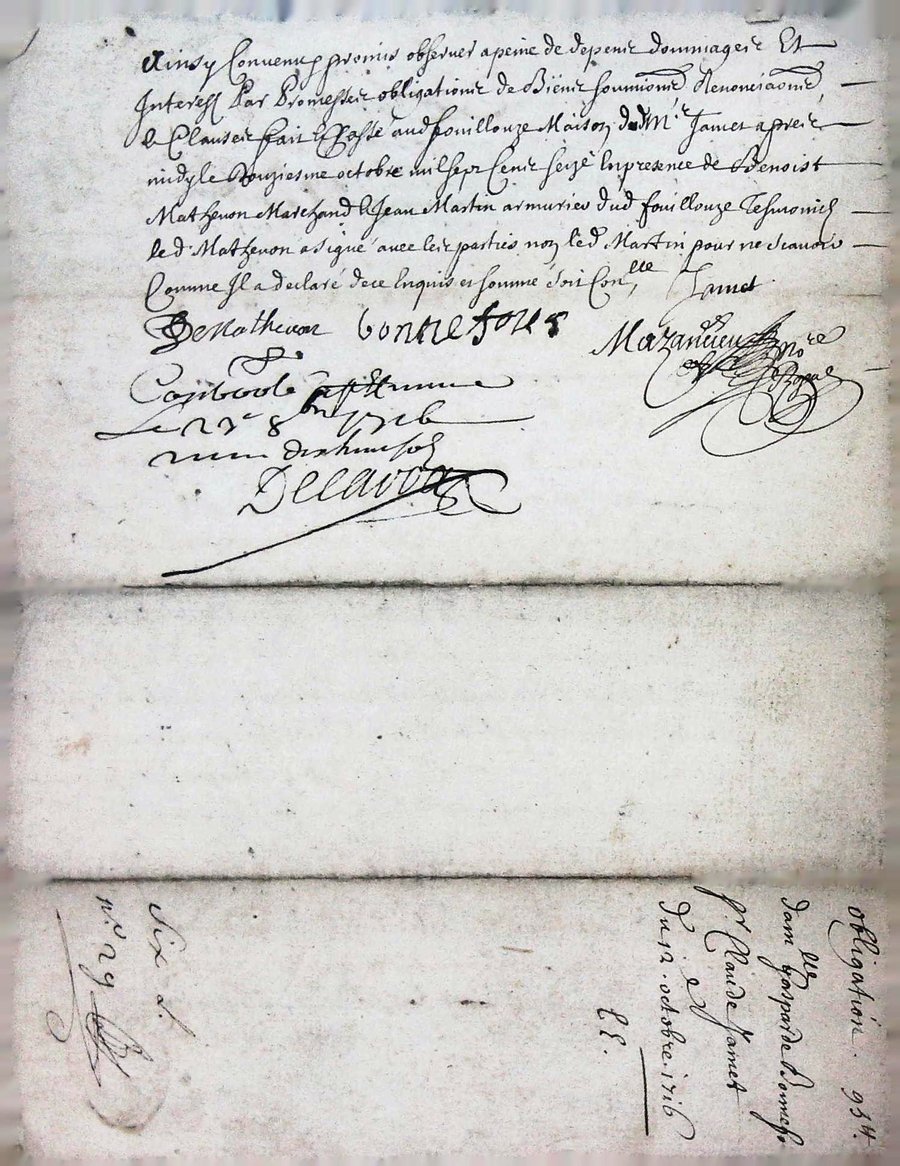 Ainsy Convenu promis observer a peine de depenz dommages Et
Interestz Par Promesses obligations de Biens Soumions Renonciaons
& Clauses fait & Passé aud fouillouze Maison dud Mr Jamet apres
midy le Douziesme octobre mil sept Cens seize En presence de Benoist
Mathevon Marchand & Jean Martin armurier dud fouillouze Tesmoins
led Mathevon a signé avec les parties non led Martin pour ne scavoir
Comme Il a declaré de ce Enquis et sommé Soit Conlle Jamet
BeMathevon bonnefous
Mazancieu
Nore Royal
Contoolé a St
Le 8bre 1716
dix huit sols
obligation. 934.
dam lle gasparde
pr Claude Jamet
du 12 e octobre. 1716
Six L
no 29